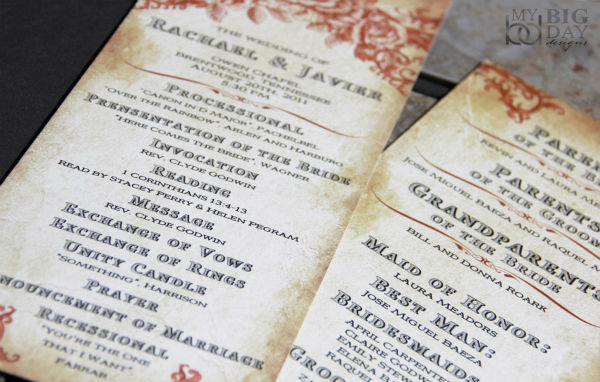 MY BIG DAY
designs
THE WEDDING OF
RACHAEL & JAVIER
OWEN CHAPEL
BRENTWOOD, TENNESSEE
AUGUST 20TH, 2011
5:30 PM
PROCESSIONAL
"CANON IN D MAJOR", PACHELBEL
"OVER THE RAINBOW" ARLEN AND HARBURG
PRENSENTATION OF THE BRIDE
"HERE COMES THE BRIDE", WAGNER
INVOCATION
REV. CLYDE GODWIN
READING
1 CORINTHIANS 13:4-13
READ BY STACEY PERRY & HELEN PEGRAM
MESSAGE
REV. CLYDE GODWIN
EXCHANGE OF VOWS
EXCHANGE OF RINGS
UNITY CANDLE
"SOMETHING", HARRISON
PRAYER
NOUNCEMENT OF MARRIAGE
RECESSIONAL
"YOU'RE THE ONE
THAT I WANT"
FARRAR
PAREN
OF THE B
KEVIN AND LAURA M
PARENTS
OF THE GROOM
JOSE MIGUEL BAEZA AND RAQUEL
GRANDPARENTS
OF THE BRIDE
BILL AND DONNA ROARK
MAID OF HONOR:
LAURA MEADORS
BEST MAN:
JOSE MIGUEL BAEZA
BRIDESMAIDS
APRIL CARPENTE
CLAIRE GODW
EMILY STEV
ELENA B
GROO